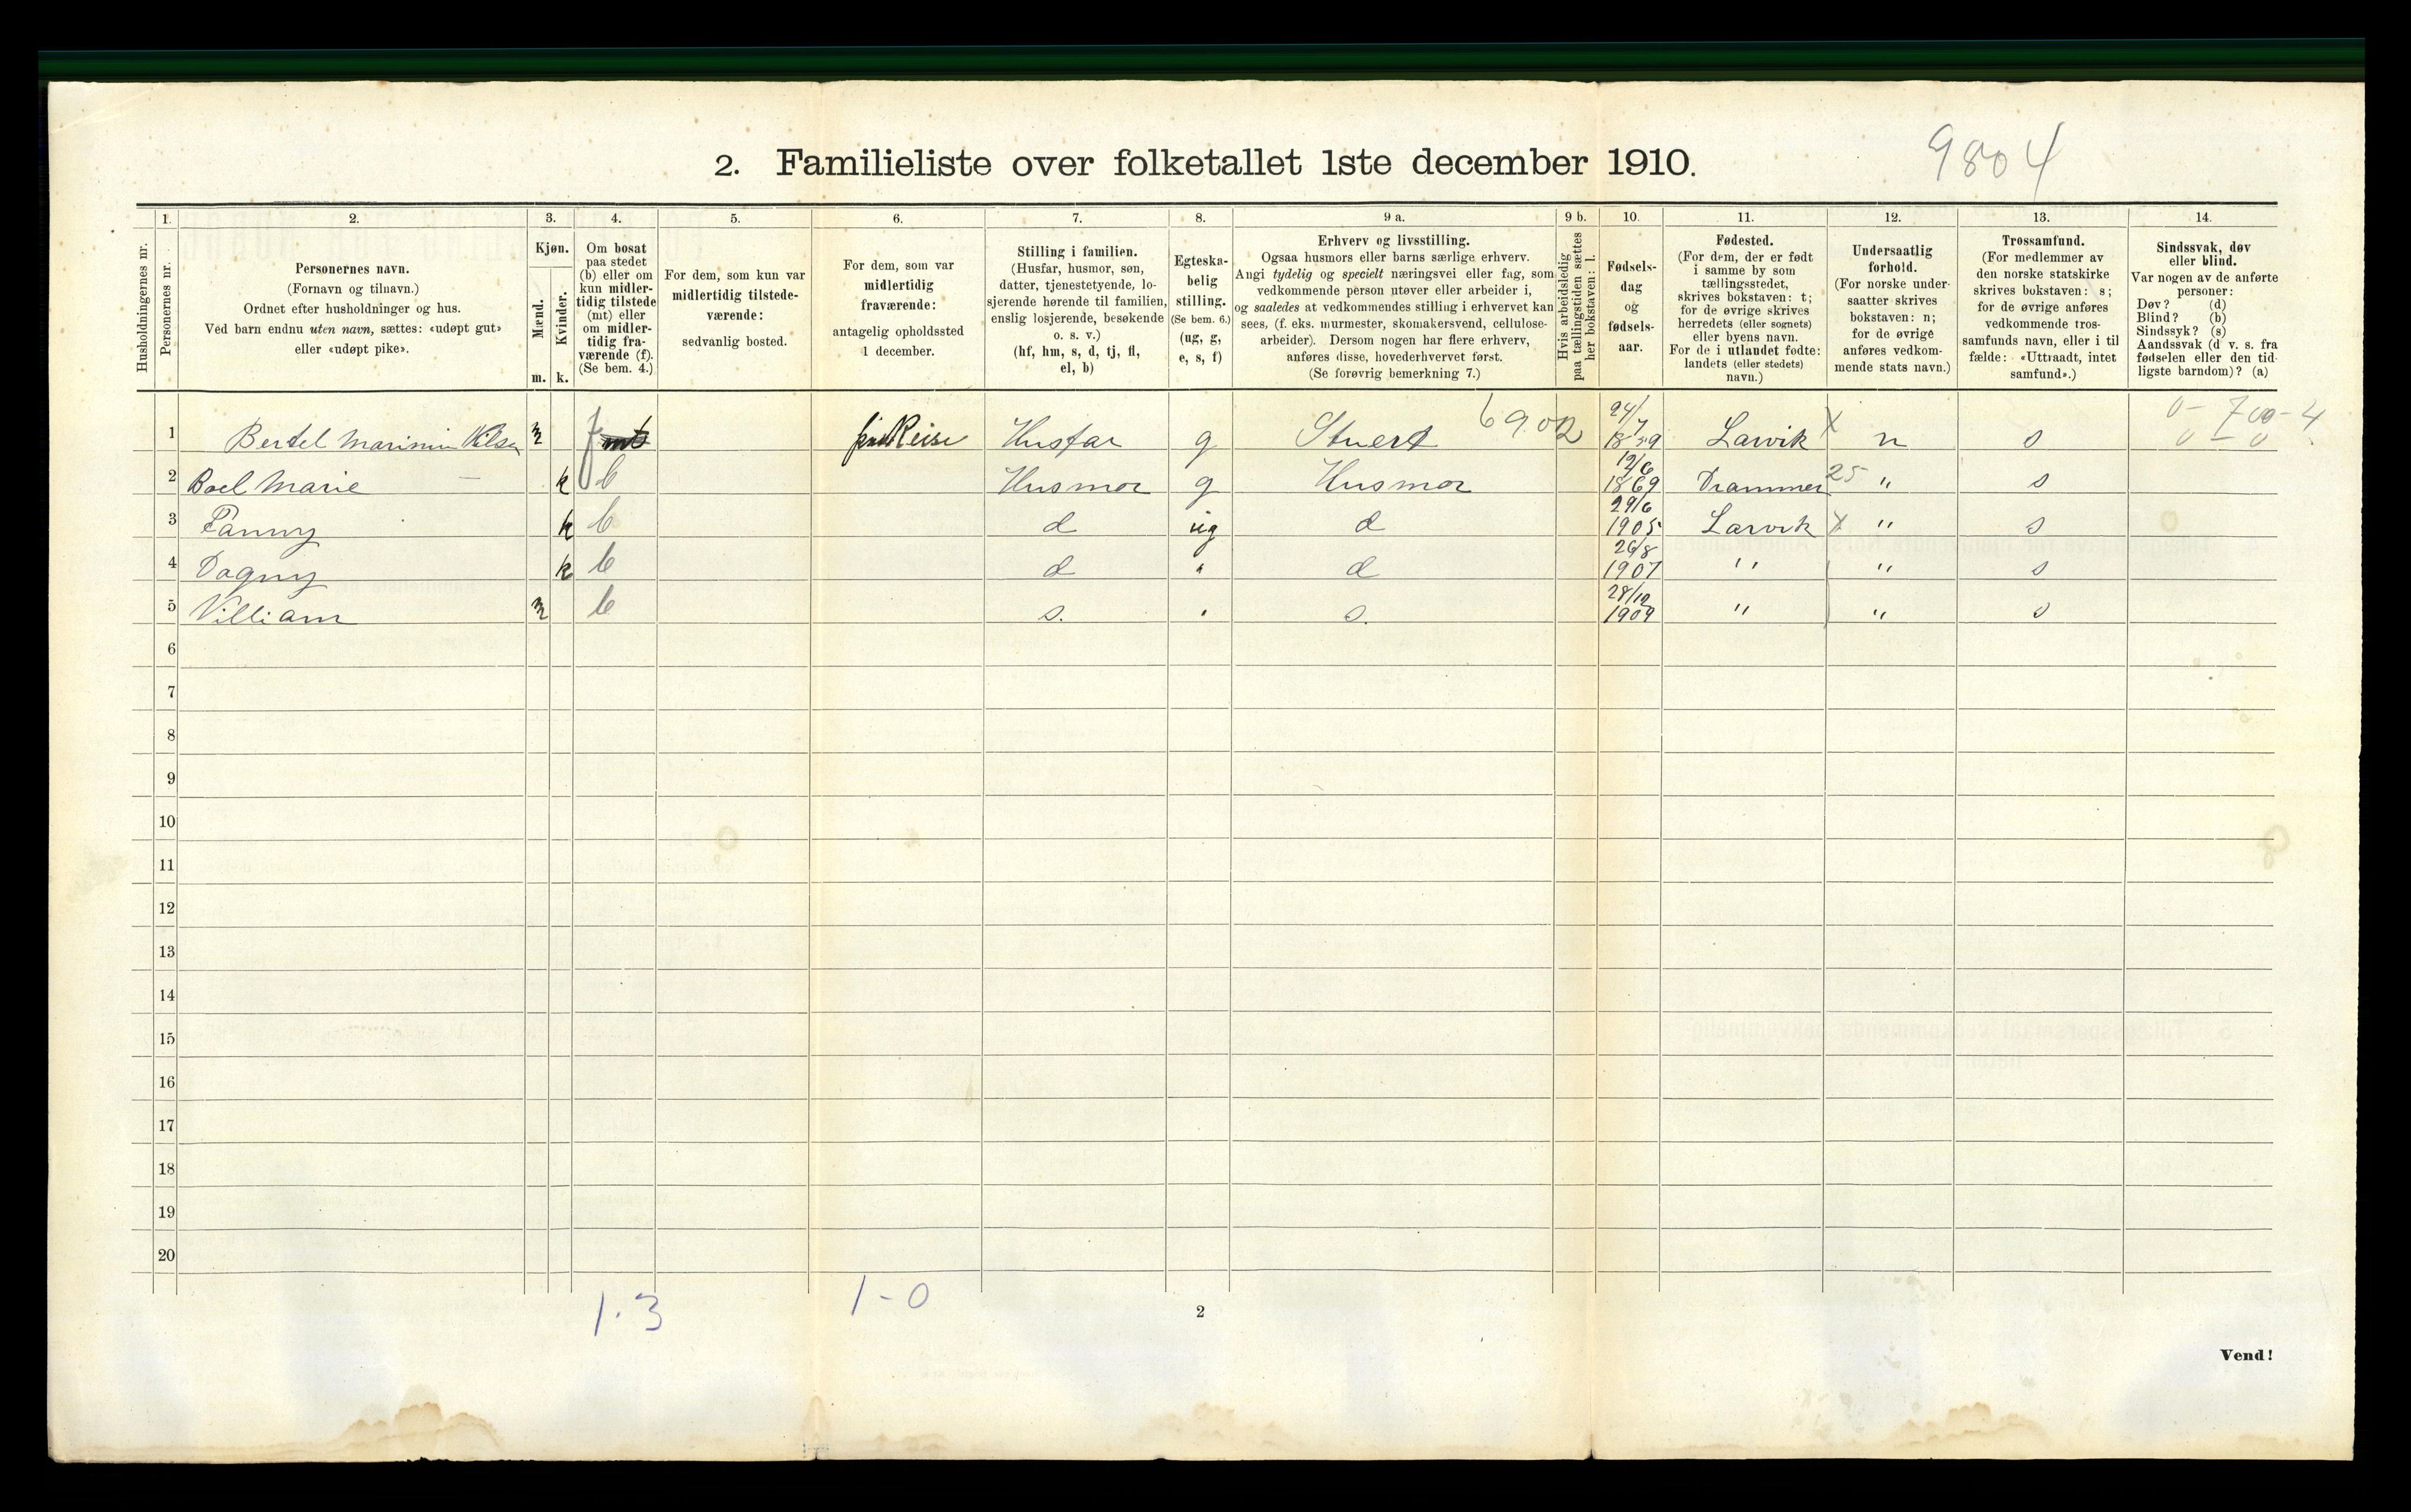 9804
2. Familieliste over folketallet 1ste december 1910.
1. 2. 3. 4. 5. 6. 7. 8. 9 a. 9 b. 10. 11. 12. 13. 14.
Husholdningernes nr.
Personernes nr.
Personernes navn.
(Fornavn og tilnavn.)
Ordnet efter husholdninger og hus.
Ved barn endnu uten navn, sættes: «udøpt gut»
eller «udøpt pike».
Kjøn.
Mænd.
Kvinder.
m. k.
Om bosat
paa stedet
(b) eller om
kun midler-
tidig tilstede
(mt) eller
om midler-
tidig fra-
værende (f).
(Se bem. 4.)
For dem, som kun var
midlertidig tilstede-
værende:
sedvanlig bosted.
For dem, som var
midlertidig
fraværende:
antagelig opholdssted
1 december.
Stilling i familien.
(Husfar, husmor, søn,
datter, tjenestetyende, lo-
sjerende hørende til familien,
enslig losjerende, besøkende
o. s. v.)
(hf, hm, s, d, tj, fl,
el, b)
Egteska-
belig
stilling.
(Se bem. 6.)
(ug, g,
e, s, f)
Erhverv og livsstilling.
Ogsaa husmors eller barns særlige erhverv.
Angi tydelig og specielt næringsvei eller fag, som
vedkommende person utøver eller arbeider i,
og saaledes at vedkommendes stilling i erhvervet kan
sees, (f. eks. murmester, skomakersvend, cellulose-
arbeider). Dersom nogen har flere erhverv,
anføres disse, hovederhvervet først.
(Se forøvrig bemerkning 7.)
Hvis arbeidsledig
paa tællingstiden sættes
her bokstaven: l.
Fødsels-
dag
og
fødsels-
aar.
Fødested.
(For dem, der er født
i samme by som
tællingsstedet,
skrives bokstaven: t;
for de øvrige skrives
herredets (eller sognets)
eller byens navn.
For de i utlandet fødte:
landets (eller stedets)
navn.)
Undersaatlig
forhold.
(For norske under-
saatter skrives
bokstaven: n;
for de øvrige
anføres vedkom-
mende stats navn.)
Trossamfund.
(For medlemmer av
den norske statskirke
skrives bokstaven: s;
for de øvrige anføres
vedkommende tros-
samfunds navn, eller i til
fælde: «Uttraadt, intet
samfund».)
Sindssvak, døv
eller blind.
Var nogen av de anførte
personer:
Døv? (d)
Blind? (b)
Sindssyk? (s)
Aandssvak (d v. s. fra
fødselen eller den tid-
ligste barndom)? (a)
1 Bertel m f mt Reise Husfar g Stuert 69.02 24/7 Larvik X n s 0-700-4
0-0
2 Boel Marie — k b Husmor g Husmor 12/6 1869 Drammen 25 " s
3 Fanny k b d ug d 29/6 1905 Larvik X " s
4 Dagny k b d " d 26/8 1907 " " s
5 Villiam m b s. " s. 28/12 1909 " " s
6
7
8
9
10
11
12
13
14
15
16
17
18
19
20
1.3 1-0
2
Vend!